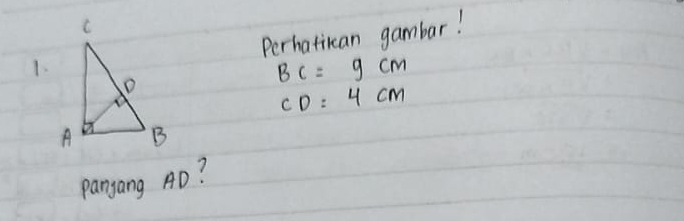 1.
C
D
A
B
Perhatikan gambar!
BC = 9 cm
CD = 4 cm
panjang AD?